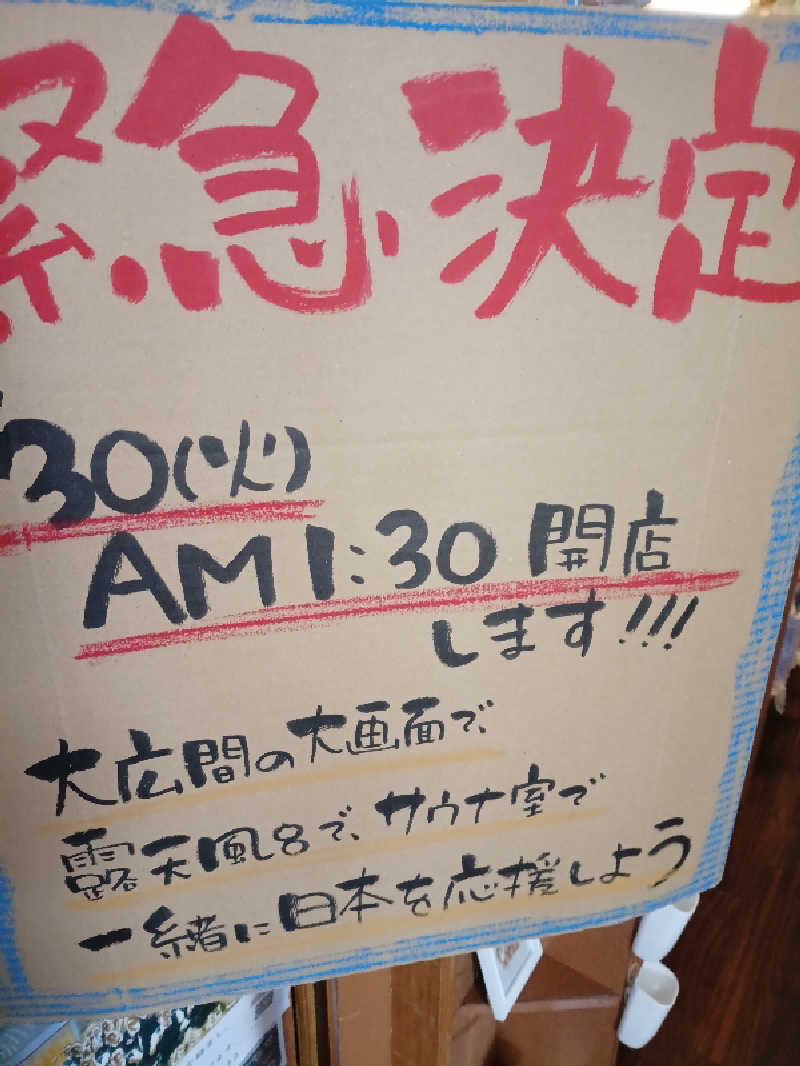 緊急決定
30(火)
AM1:30 開店
します!!!
大広間の大画面で、
露天風呂で、サウナ室で
一緒に日本を応援しよう